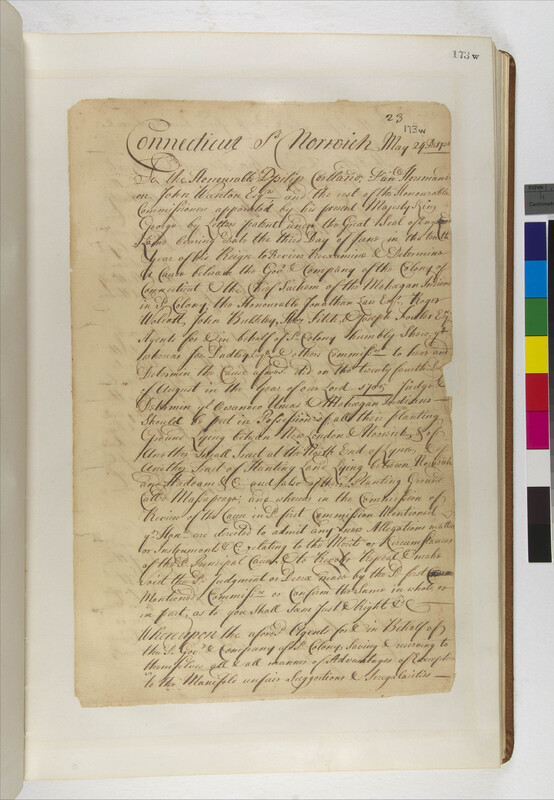 173w
23
173w
Connecticut Ss Norwich May 24th
To the Honourable Philip Cortlandt, Danll Horsmanden
on John Rventon Esqrs and the rest of the Honourable
Commissioners appointed by his present Majesty King
George by Letters patent under the Great Seal of England
bearing Date the third Day of June in the
year of his Reign to Review Reexamine & Determine
a Cause between the Govr & Company of the Colony of
Connecticut & the Chief Sachem of the Mohegan Indians
in Sd Colony the Honourable Jonathan Law Esqr, Roger
Wolcott, John Bulkley, Fitch, & Joseph Fowler Esqrs
Agents for & in behalf of Sd Colony humbly Shew, yt
whereas Jos Dudley Esqr & others Commissrs to hear and
Determin the Cause aforesd did on the twenty fourth
of August in the year of our Lord 1705 Judge &
Determin yt Owaneco Uncas & Mohegan Indians
Should be put in Possession of all their Planting
Ground Lying between New London & Norwich, & of
Another Small Tract at the North End of Lyme, & of
Another Tract of Hunting Land Lying between Norwich
and Haddam & C and also of their Planting Ground
Calld Massapeag: and whereas in the Commission of
Review of the Cause in Sd first Commission Mentioned
yr Honrs are directed to admit any new Allegations
or Instruments & C relating to the Merits or Circumstances
of the Sd Principal Cause & to Revoke Repeal & make
void the Sd Judgment or Decree made by the Sd first
Mentioned Commissrs or Confirm the Same in whole or
in part, as to you Shall Seem Just & Right & C
Whereupon the aforesd Agents for & in Behalf of
the Sd Govr & Company of Sd Colony Saving & reserving to
themselves all & all manner of Advantages of Exception
to the Manifold unfair Suggestions & Irregularities